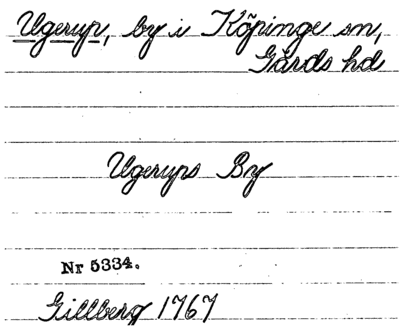 Ugerup, by i Köpinge sn,
Gärds hd
Ugerups By
Nr 5334.
Gillberg 1767